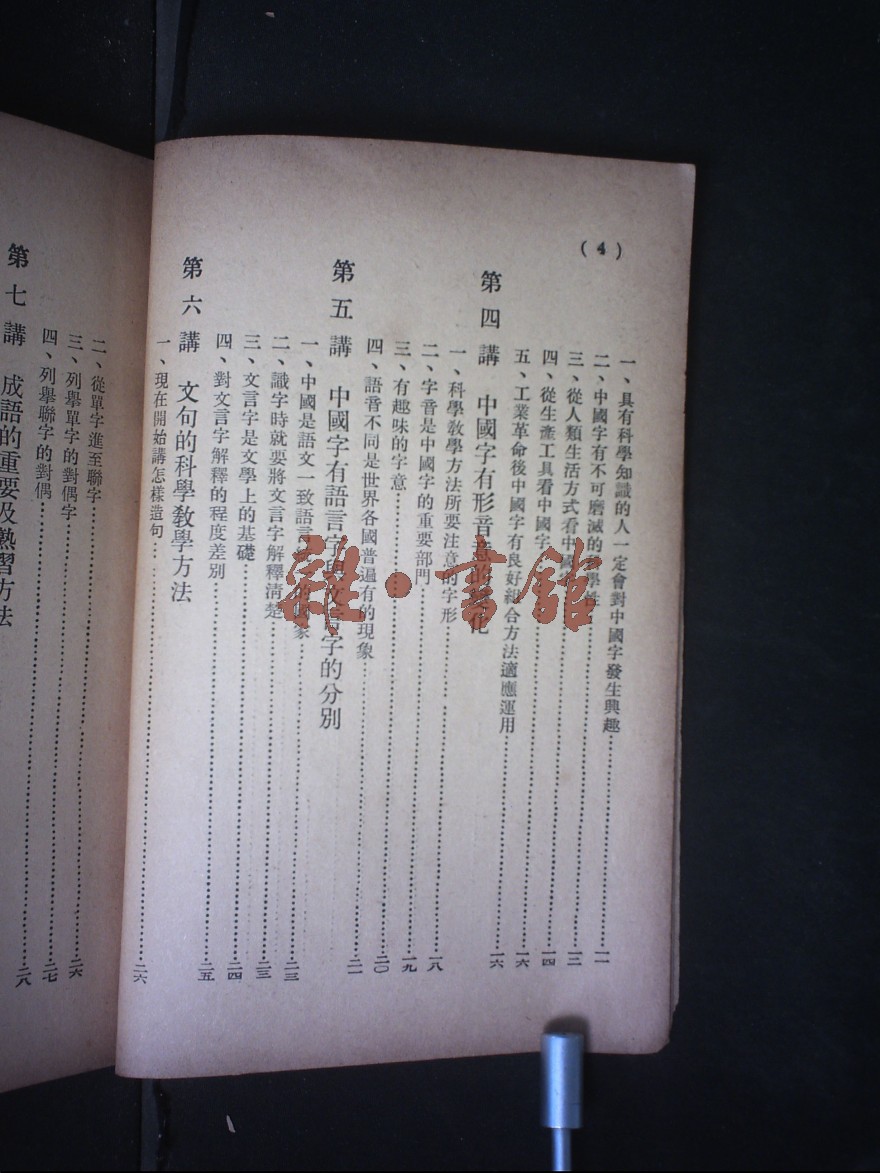 (4)
一、具有科學知識的人一定會對中國字發生興趣……一一
二、中國字有不可磨滅的學性……一二
三、從人類生活方式看中國……一四
四、從生產工具看中國字……一六
五、工業革命後中國字有良好組合方法適應運用……一六
第四講 中國字有形音意的化
一、科學教學方法所要注意的字形……一八
二、字音是中國字的重要部門……一九
三、有趣味的字意……二〇
四、語音不同是世界各國普遍有的現象……二一
第五講 中國字有語言字與文言字的分別
一、中國是語文一致語言一的象……二三
二、識字時就要將文言字解釋清楚……二三
三、文言字是文學上的基礎……二四
四、對文言字解釋的程度差別……二五
第六講 文句的科學教學方法
一、現在開始講怎樣造句……二六
二、從單字進至聯字……二六
三、列舉單字的對偶字……二七
四、列舉聯字的對偶……二八
第七講 成語的重要及熟習方法
雜·書館